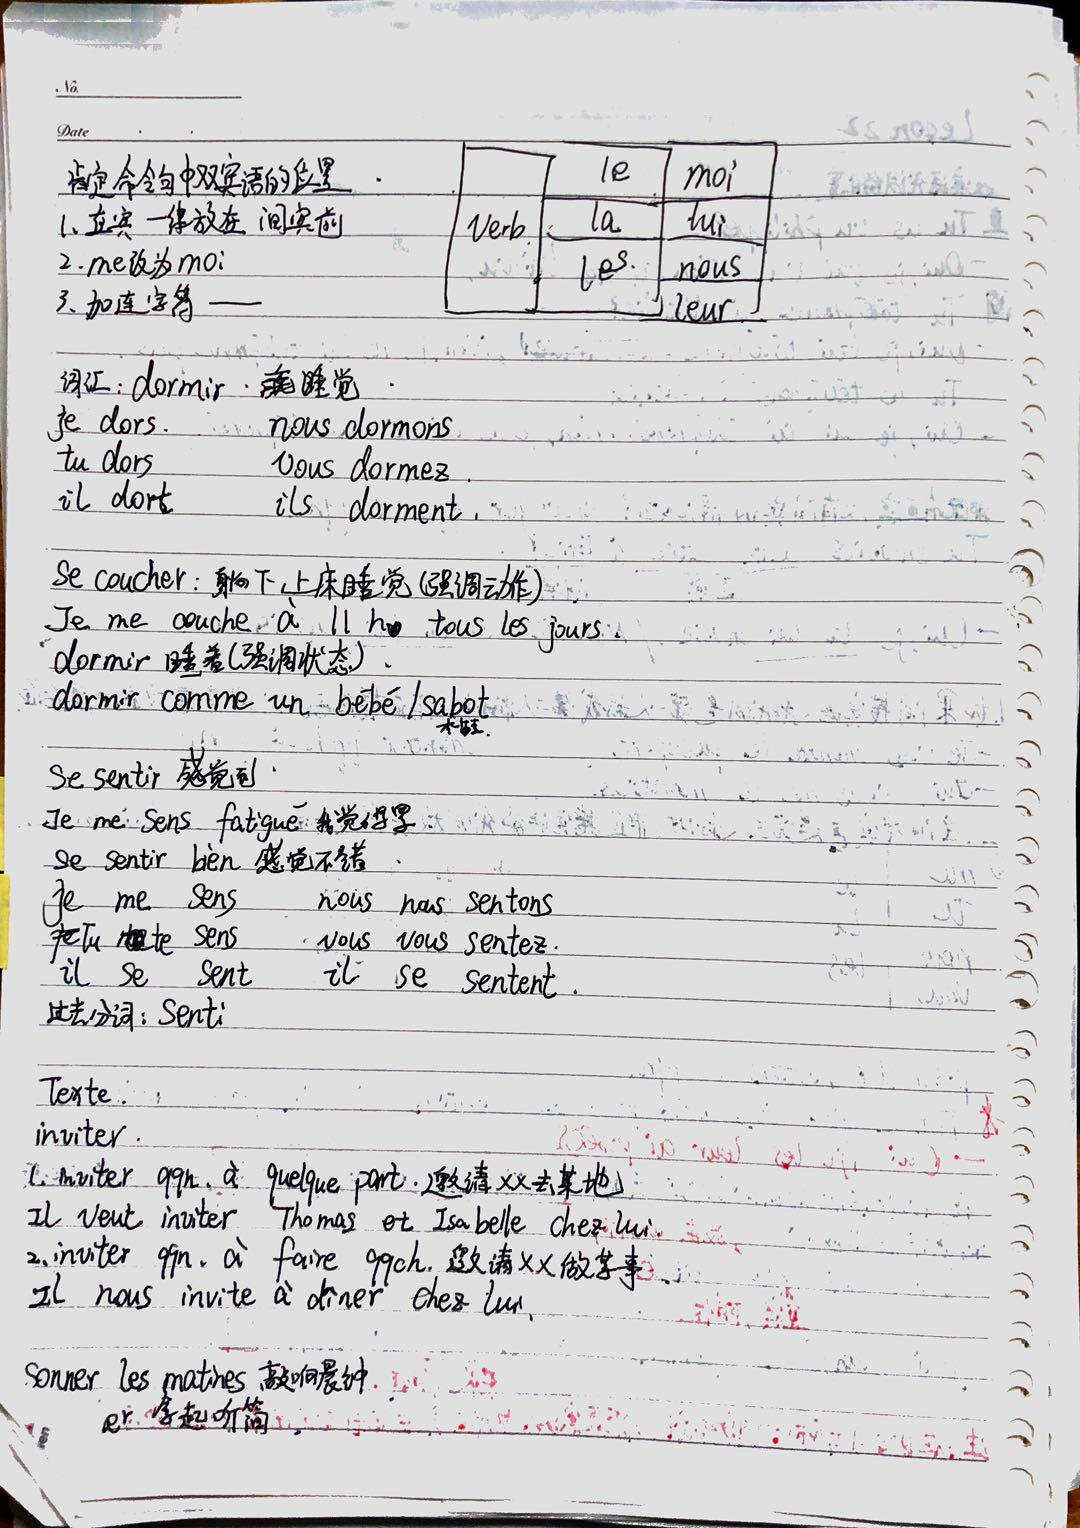 No.
Date
肯定命令句中双宾语的位置
1、直宾一律放在间宾前
2. me改为moi
3、加连字符 —
verb le moi
la lui
les. nous
leur
词汇: dormir . 睡觉 .
je dors. nous dormons
tu dors vous dormez.
il dort ils dorment.
Se coucher: 躺下上床睡觉(强调动作)
Je me couche à 11 h tous les jours.
dormir 睡着(强调状态).
dormir comme un bébé/sabot
木鞋.
Se sentir 感觉到.
Je me sens fatigué 我觉得累.
se sentir bien 感觉不错.
je me sens nous nous sentons
Tu te sens vous vous sentez.
il se sent il se sentent.
过去分词: Senti
Texte.
inviter.
1. inviter qqn. à quelque part. 邀请××去某地
Il veut inviter Thomas et Isabelle chez lui.
2. inviter qqn. à faire qqch. 邀请××做某事.
Il nous invite à diner chez lui.
Sonner les matines 敲响晨钟.
er 拿起听筒.